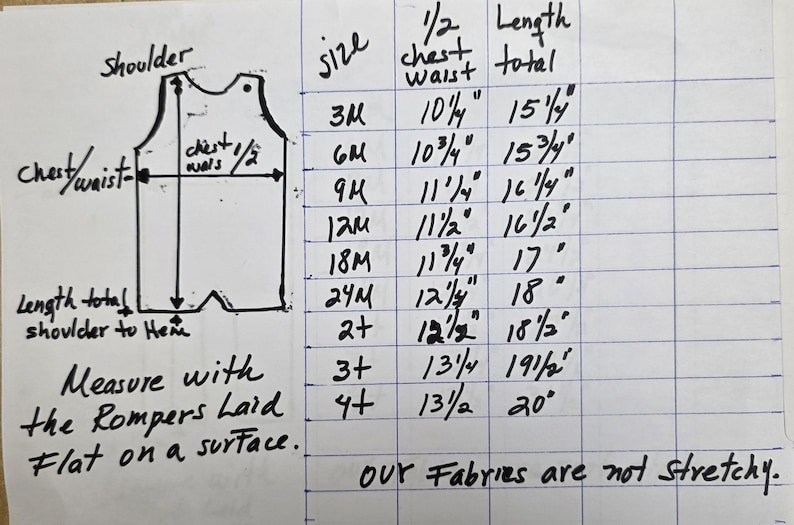 Shoulder
chest
wais 1/2
Chest/waist
Length total
shoulder to Hem
Measure with
the Rompers Laid
Flat on a surface.
size 1/2 chest waist Length total
3M 10 1/4" 15 1/4"
6M 10 3/4" 15 3/4"
9M 11 1/4" 16 1/4"
12M 11 1/2" 16 1/2"
18M 11 3/4" 17"
24M 12 1/4" 18"
2t 12 1/2" 18 1/2"
3t 13 1/4 19 1/2"
4t 13 1/2 20"
our Fabrics are not stretchy.